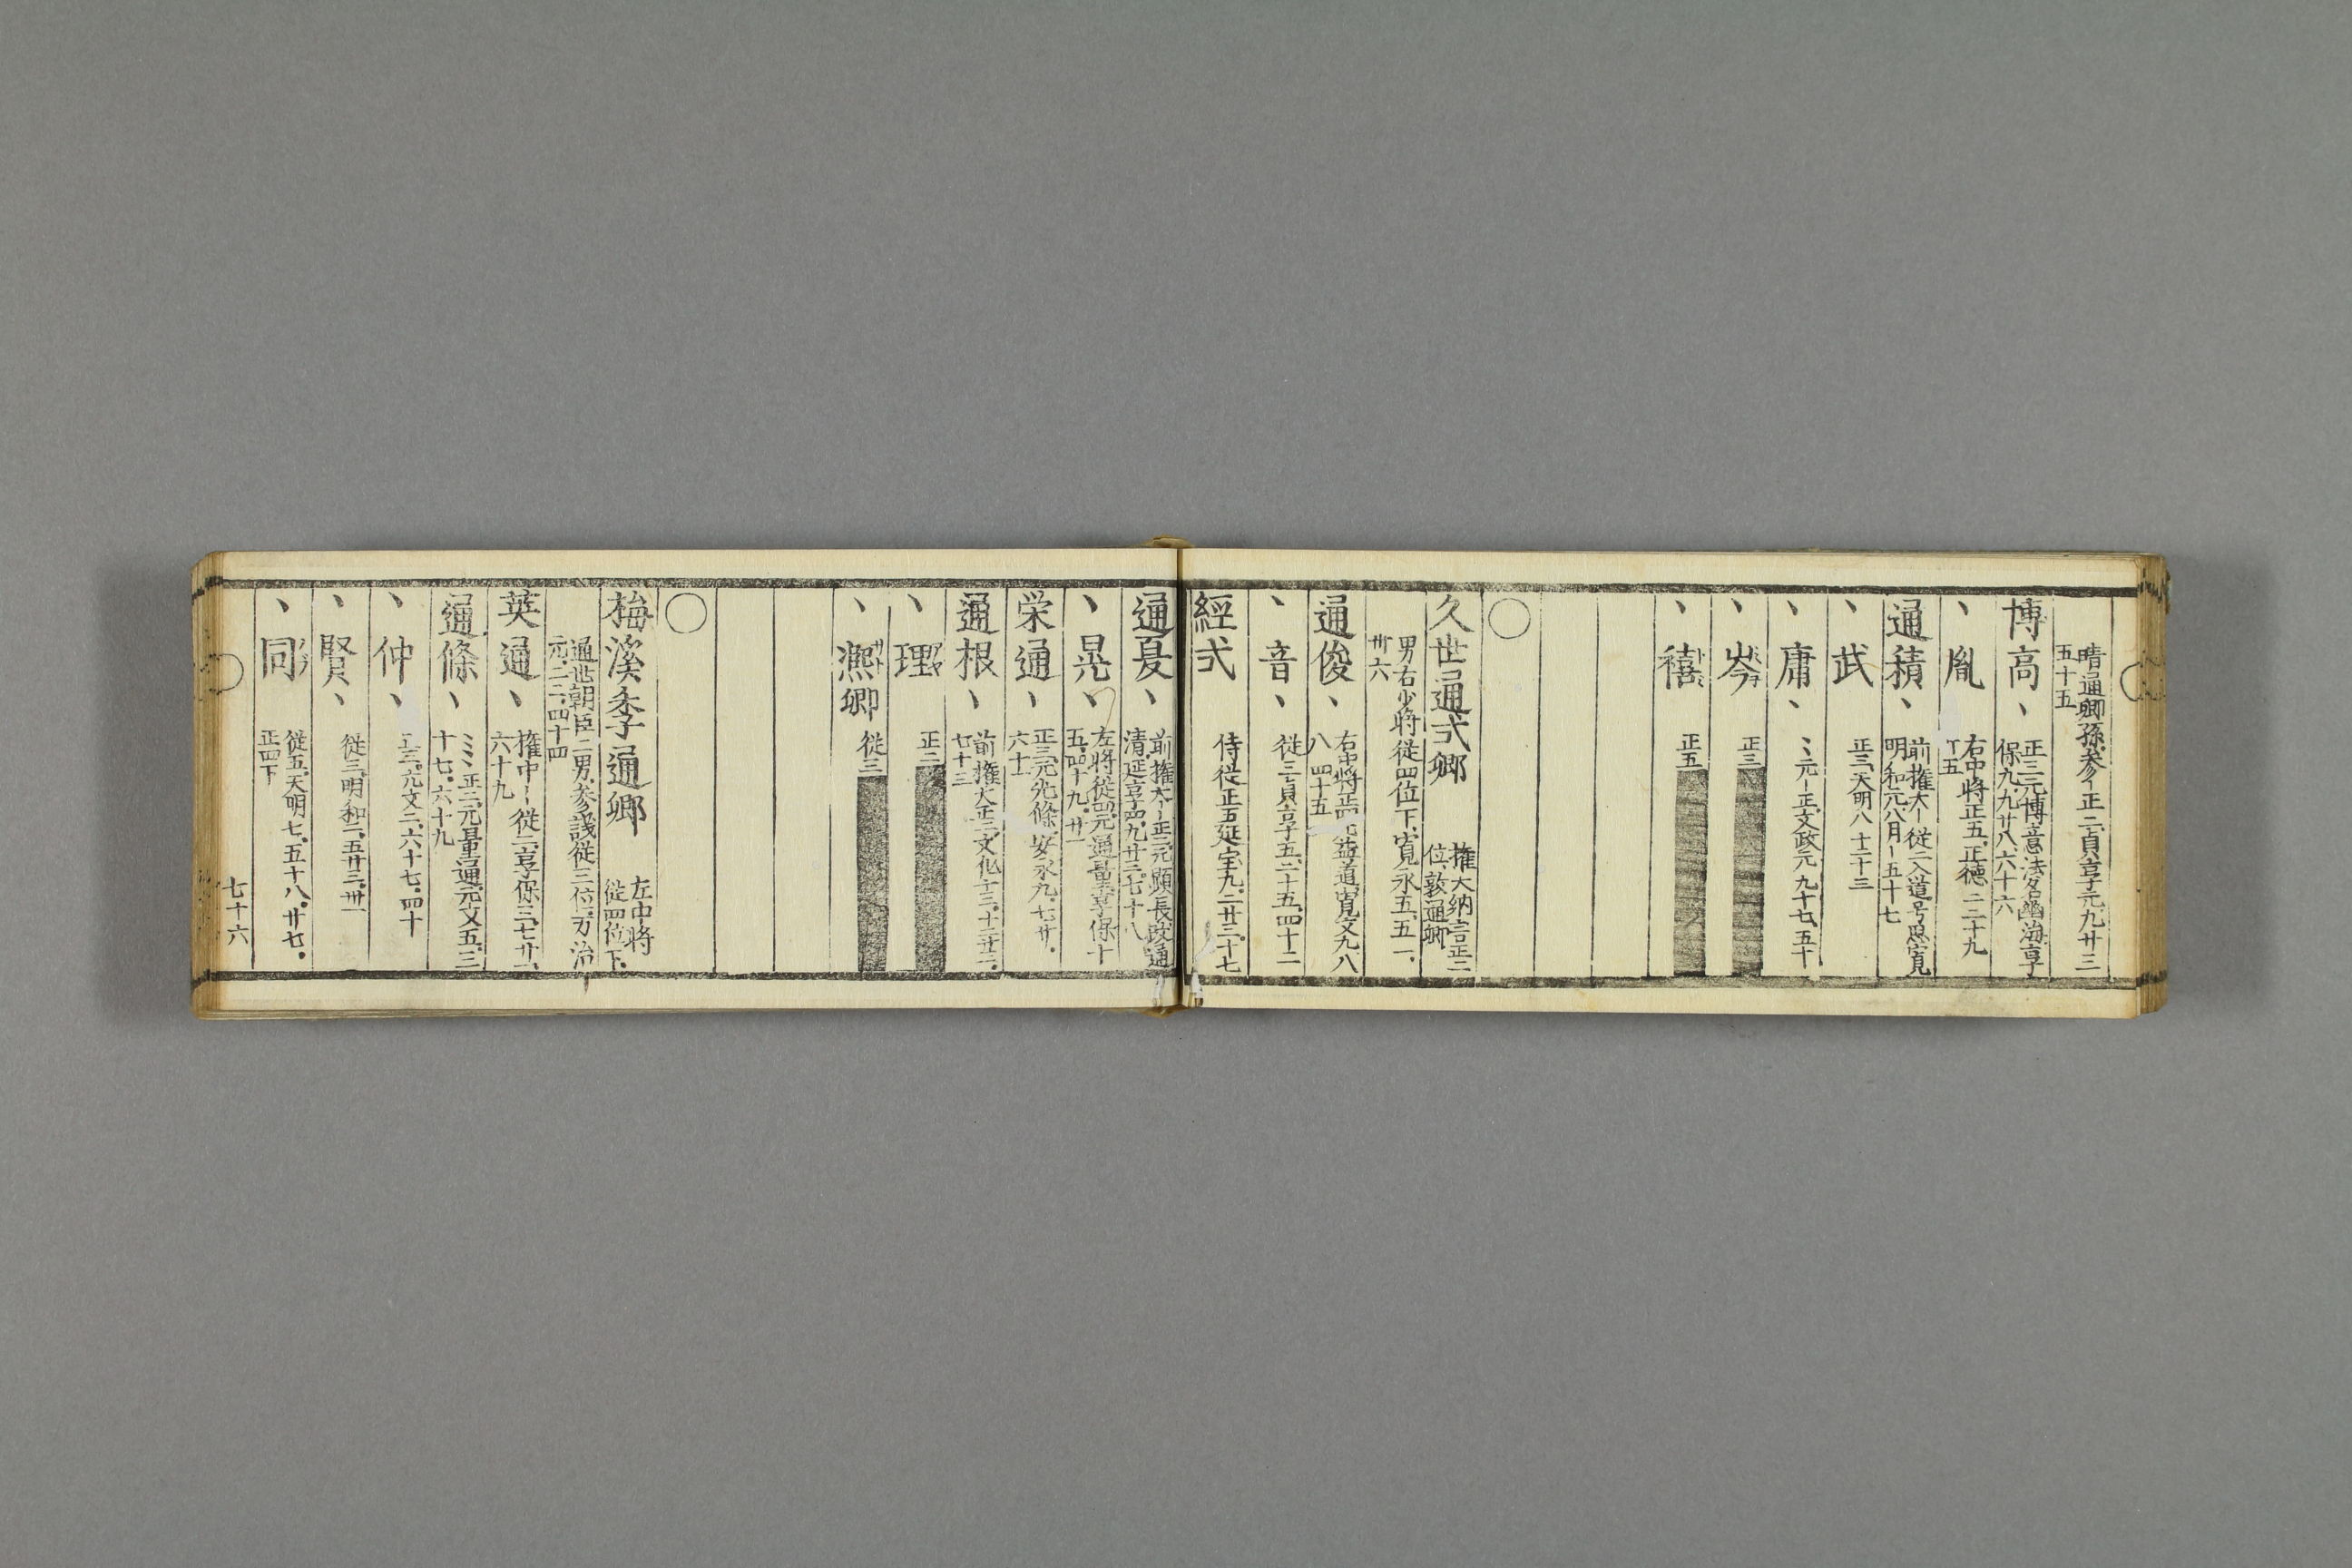 晴通卿孫.参ー正二.貞享元.九廿三
五十五
博高、
正三.元博意.法名幽海.享
保九.九廿八.六十六
、胤
右中将正五.正徳二二十九
十五
通積、
前権大ー従二.入道号
明和元八月ー五十七
、武
正三.天明八十二十三
、庸、
ミ元ー正.文政元.九十七.五十
、岑
正三
、禧
正五
〇
久世通式卿
権大納言正二
位敦通卿
男右少将従四位下.寛永五.五一.
卅六
通俊、
右中将正四.寛文九.八
八 四十五
、音、
従三.貞享五.二十五.四十二
經式
侍従正五.延宝九.二廿三.十七
通夏、
前権大ー正二.元顕長.改通
清.延享四.九廿三.七十八
、晃、
左将従四.元通量.享保十
五.四十九.廿一
栄通、
正三.元光條.安永九.七廿.
六十一
通根、
前権大正二.文化十三.十二廿二.
七十三
、理
正二
、凞卿
従三
〇
梅溪季通卿
左中将
従四位下.
通世朝臣二男.参議従三位.万治
元.二二.四十四
英通、
権中ー従二.享保三.七廿一.
六十九
通條、
ミミ正二.元量通.元文五.三
十七.六十九
、仲、
正三.元文二.六十七.四十
、賢、
従三.明和二.五廿三.卅一
、同
従五.天明七.五十八.廿七.
正四下
七十六